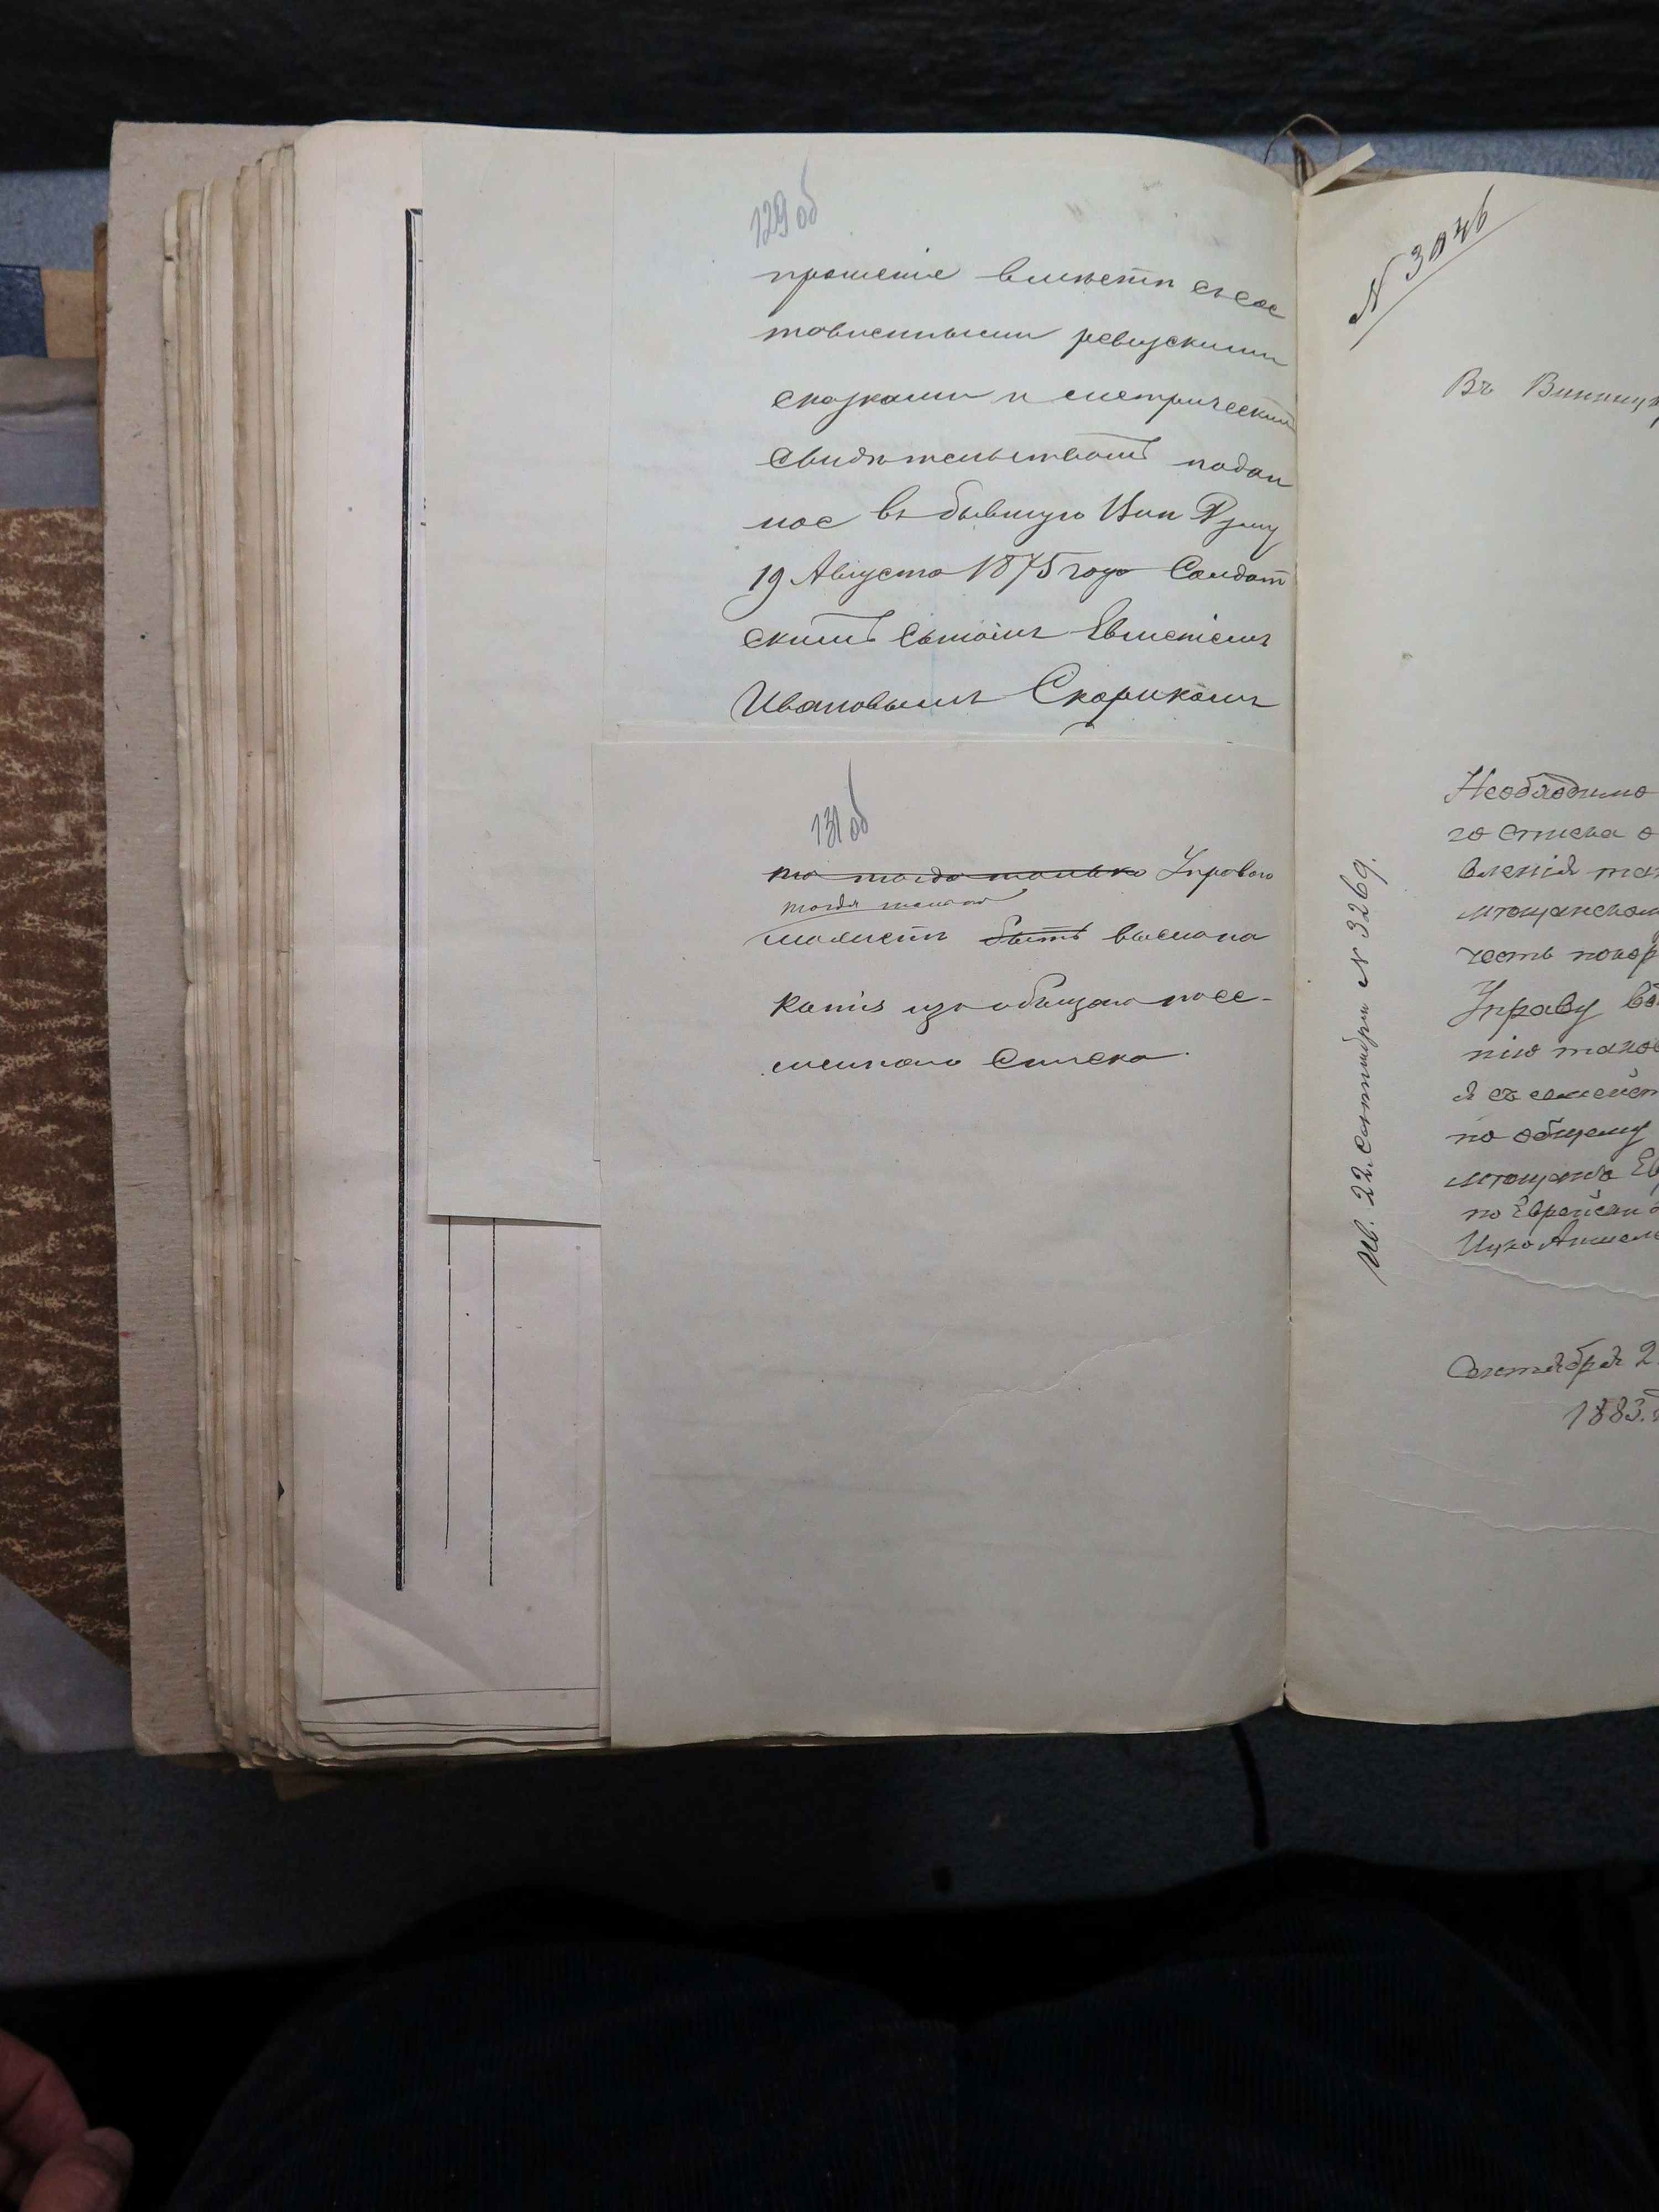 129 об
прошеніе вмѣстѣ съ сос
тавленными ревизскими
сказками и метрическим
свидѣтельствомъ подан
ное въ бывшую Вин Думу
19 Августа 1875 года Солдат
скимъ сыномъ Евметіемъ
Ивановымъ Скорикомъ
131 об
то тогда только Управою
тогда только
можетъ быть выслана
копія изъ общаго посе-
мейнаго списка.
N 3046
Въ Винниц
Необходимо
го списка о
вленія
мѣщанском
честь покор
Управу
нію таков
я съ семейст
по общему
мѣщанъ Ев
по Еврейски
Ицко
Сентября 2
1883.
22. Сентября N 3269.